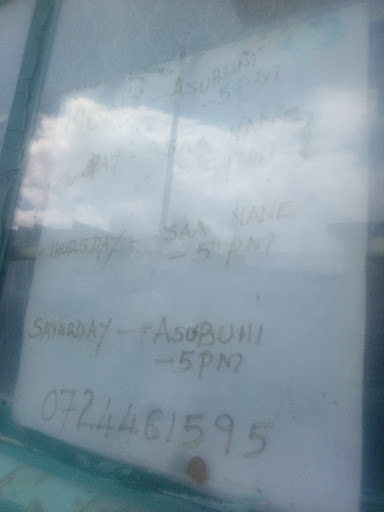 - ASUBUHI
- 5PM
SAA NANE
THURSDAY - SAA NANE
- 5 PM
SATURDAY - ASUBUHI
- 5PM
0724461595